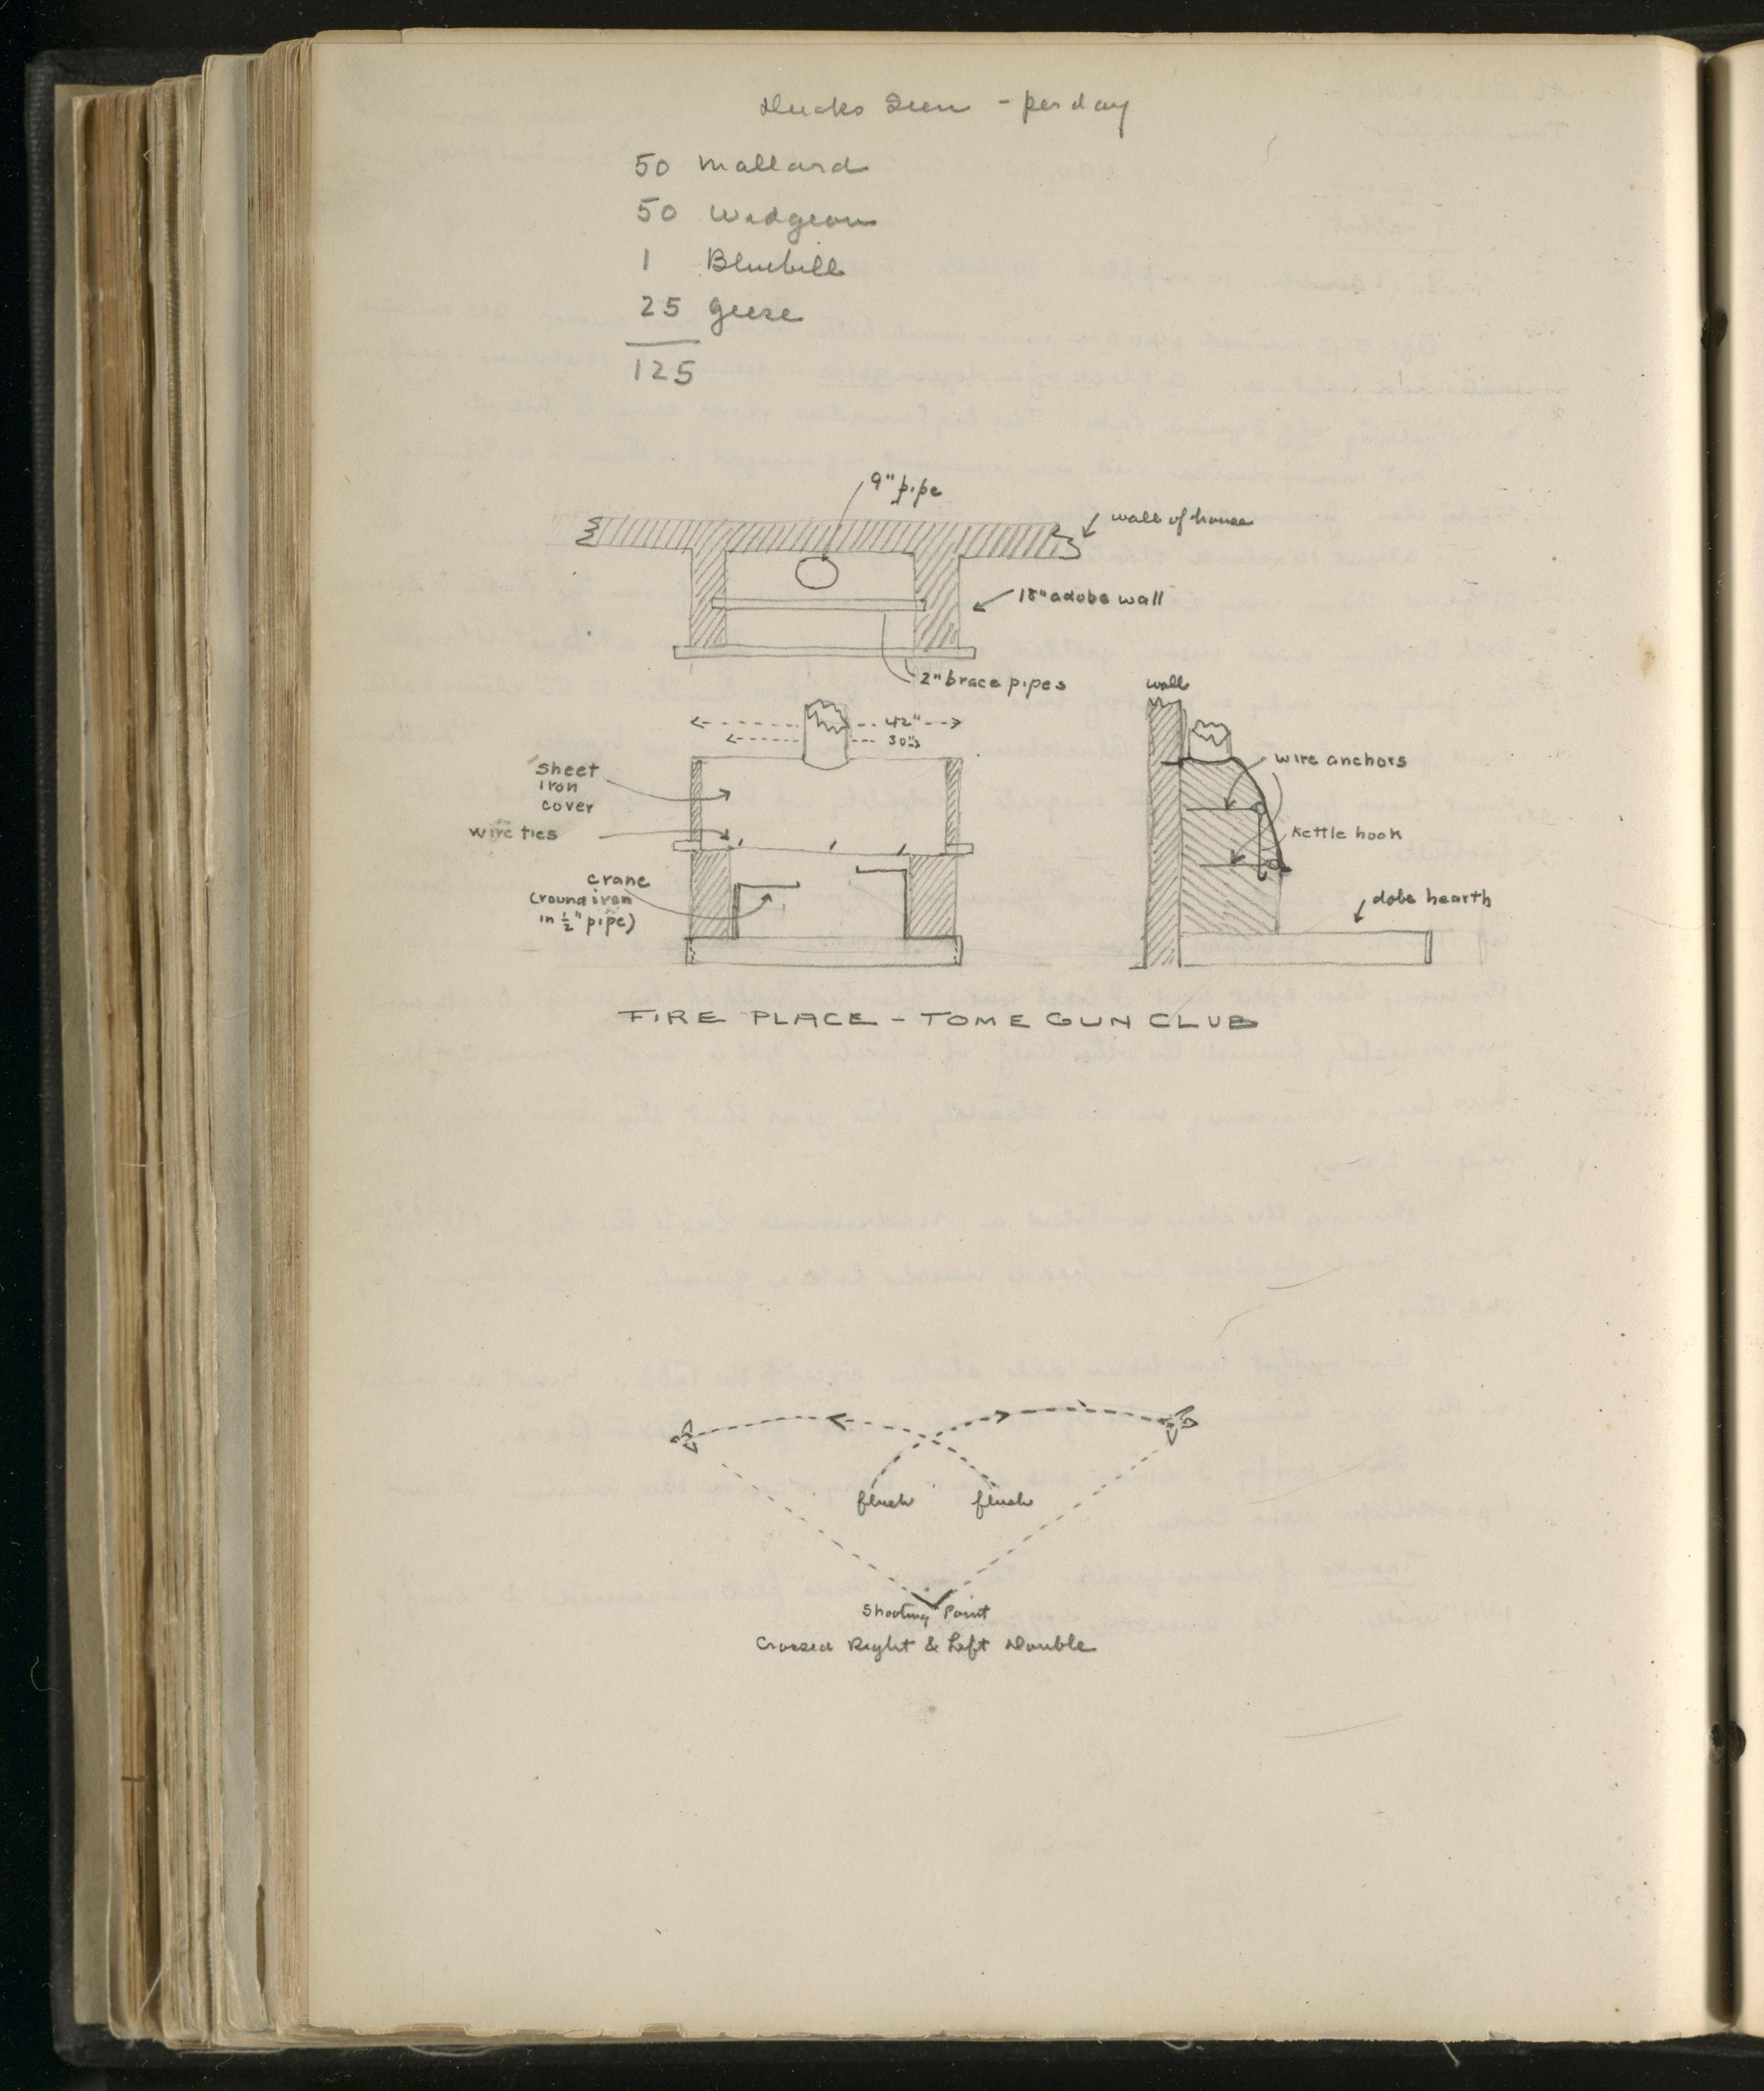 Ducks Seen - per day
50 Mallard
50 Widgeon
1 Bluebill
25 geese
125
9" pipe
wall of house
18" adobe wall
2" brace pipes
wall
42"
30"
sheet
iron
cover
wire ties
wire anchors
kettle hook
crane
(round iron
in ½" pipe)
dobe hearth
FIRE PLACE - TOME GUN CLUB
flush flush
Shooting Point
Crossed Right & Left Double